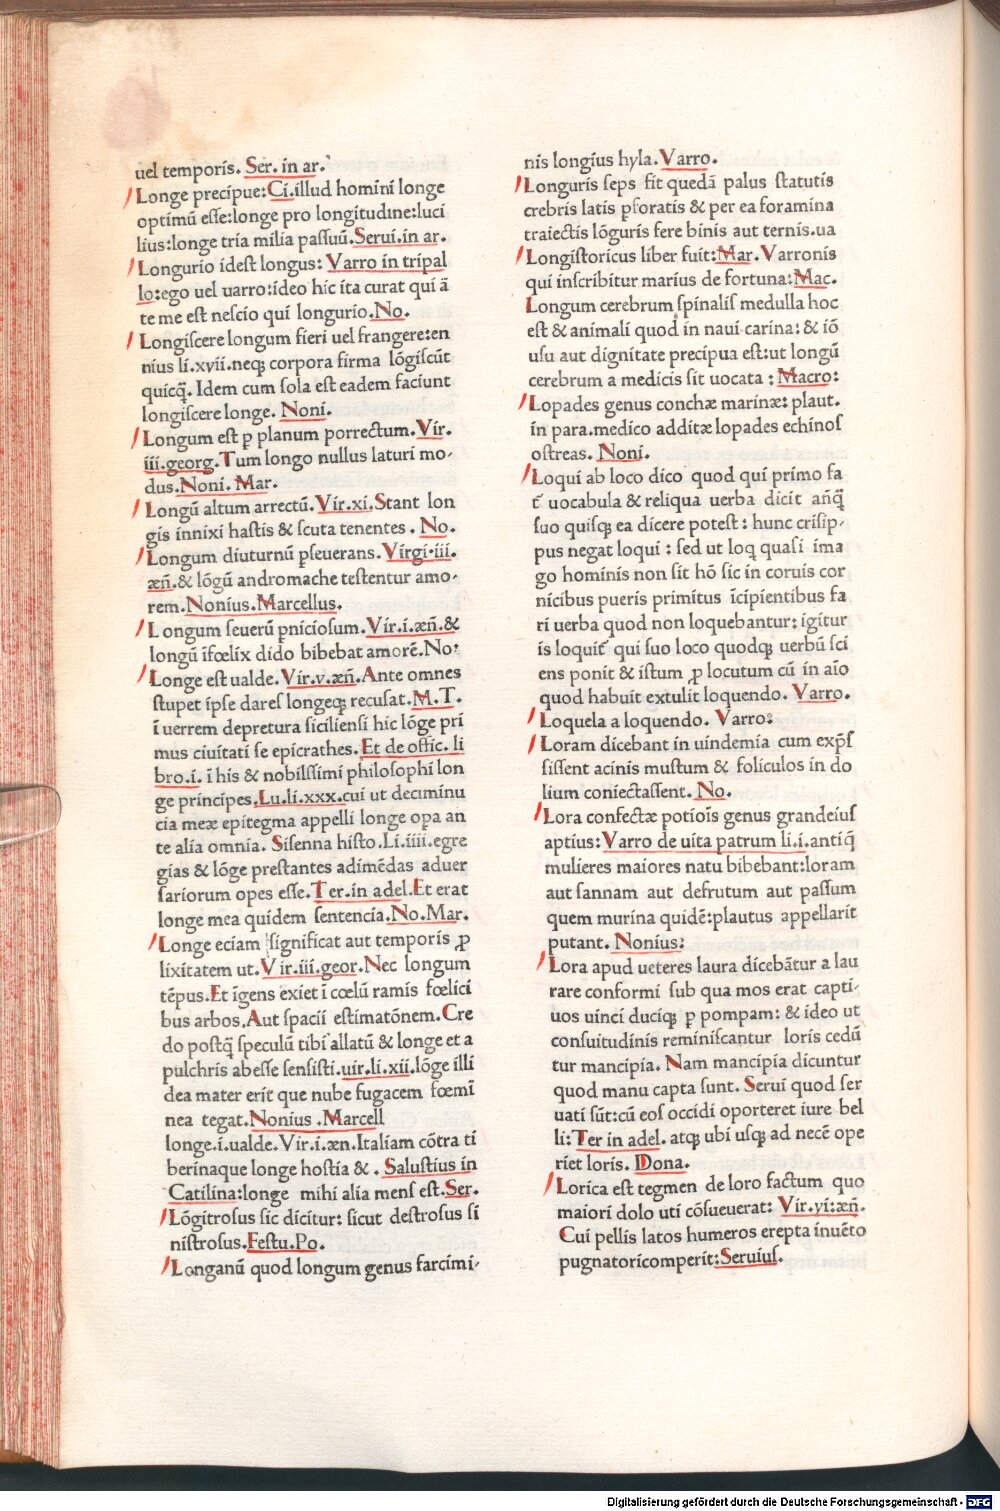 uel temporis. Ser. in ar.
Longe precipue: Ci. illud homini longe
optimū esse: longe pro longitudine: luci
lius: longe tria milia passuū. Serui. in ar.
Longurio idest longus: Varro in tripal
lo: ego uel uarro: ideo hic ita curat qui ā
te me est nescio qui longurio. No.
Longiscere longum fieri uel frangere: en
nius li. xvii. neqȝ corpora firma lōgiscūt
quicq̄. Idem cum sola est eadem faciunt
longiscere longe. Noni.
Longum est ꝑ planum porrectum. Vir.
iii. georg. Tum longo nullus laturi mo-
dus. Noni. Mar.
Longū altum arrectū. Vir. xi. Stant lon
gis innixi hastis & scuta tenentes. No.
Longum diuturnū ꝑseuerans. Virgi. iii.
æn̄. & lōgū andromache testentur amo-
rem. Nonius. Marcellus.
Longum seuerū ꝑniciosum. Vir. i. æn̄. &
longū īfœlix dido bibebat amorē. No:
Longe est ualde. Vir. v. æn̄. Ante omnes
stupet ipse dares longeqȝ recusat. M. T.
ī uerrem depretura siciliensi hic lōge pri
mus ciuitati se epicrathes. Et de offic. li
bro. i. ī his & nobilissimi philosophi lon
ge principes. Lu. li. xxx. cui ut decuminu
cia meæ epitegma appelli longe opa an
te alia omnia. Sisenna histo. Li. iiii. egre
gias & lōge prestantes adimēdas aduer
sariorum opes esse. Ter. in adel. Et erat
longe mea quidem sentencia. No. Mar.
Longe eciam significat aut temporis ꝓ
lixitatem ut. Vir. iii. geor. Nec longum
tēpus. Et īgens exiet ī cœlū ramis fœlici
bus arbos. Aut spacii estimatōnem. Cre
do postq̄ speculū tibi allatū & longe et a
pulchris abesse sensisti. uir. li. xii. lōge illi
dea mater erit que nube fugacem fœmī
nea tegat. Nonius. Marcell
longe. i. ualde. Vir. i. æn. Italiam cōtra ti
berinaque longe hostia &. Salustius in
Catilina: longe mihi alia mens est. Ser.
Lōgitrosus sic dicitur: sicut destrosus si
nistrosus. Festu. Po.
Longanū quod longum genus farcimi-
nis longius hyla. Varro.
Longuris seps fit quedā palus statutis
crebris latis ꝑforatis & per ea foramina
traiectis lōguris fere binis aut ternis. ua
Longistoricus liber fuit: Mar. Varronis
qui inscribitur marius de fortuna: Mac.
Longum cerebrum spinalis medulla hoc
est & animali quod in naui carina: & iō
usu aut dignitate precipua est: ut longū
cerebrum a medicis sit uocata: Macro:
Lopades genus conchæ marinæ: plaut.
in para. medico additæ lopades echinos
ostreas. Noni.
Loqui ab loco dico quod qui primo fa
t̄ uocabula & reliqua uerba dicit an̄q̄
suo quisqȝ ea dicere potest: hunc crisip-
pus negat loqui: sed ut loqȝ quasi ima
go hominis non sit hō sic in coruis cor
nicibus pueris primitus īcipientibus fa
ri uerba quod non loquebantur: igitur
is loquit̄ qui suo loco quodqȝ uerbū sci
ens ponit & istum ꝓ locutum cū in aīo
quod habuit extulit loquendo. Varro.
Loquela a loquendo. Varro:
Loram dicebant in uindemia cum expſ
sissent acinis mustum & foliculos in do
lium coniectassent. No.
Lora confectæ potiois genus grandeius
aptius: Varro de uita patrum li. i. antiq̄
mulieres maiores natu bibebant: loram
aut sannam aut defrutum aut passum
quem murina quidē: plautus appellarit
putant. Nonius:
Lora apud ueteres laura dicebātur a lau
rare conformi sub qua mos erat capti-
uos uinci duciqȝ ꝑ pompam: & ideo ut
consuitudinis reminiscantur loris cedū
tur mancipia. Nam mancipia dicuntur
quod manu capta sunt. Serui quod ser
uati sūt: cū eos occidi oporteret iure bel
li: Ter in adel. atqȝ ubi usqȝ ad necē ope
riet loris. Dona.
Lorica est tegmen de loro factum quo
maiori dolo uti cōsueuerat: Vir. yi: æn̄.
Cui pellis latos humeros erepta inuēto
pugnatoricomperit: Seruius.
Digitalisierung gefördert durch die Deutsche Forschungsgemeinschaft - DFG